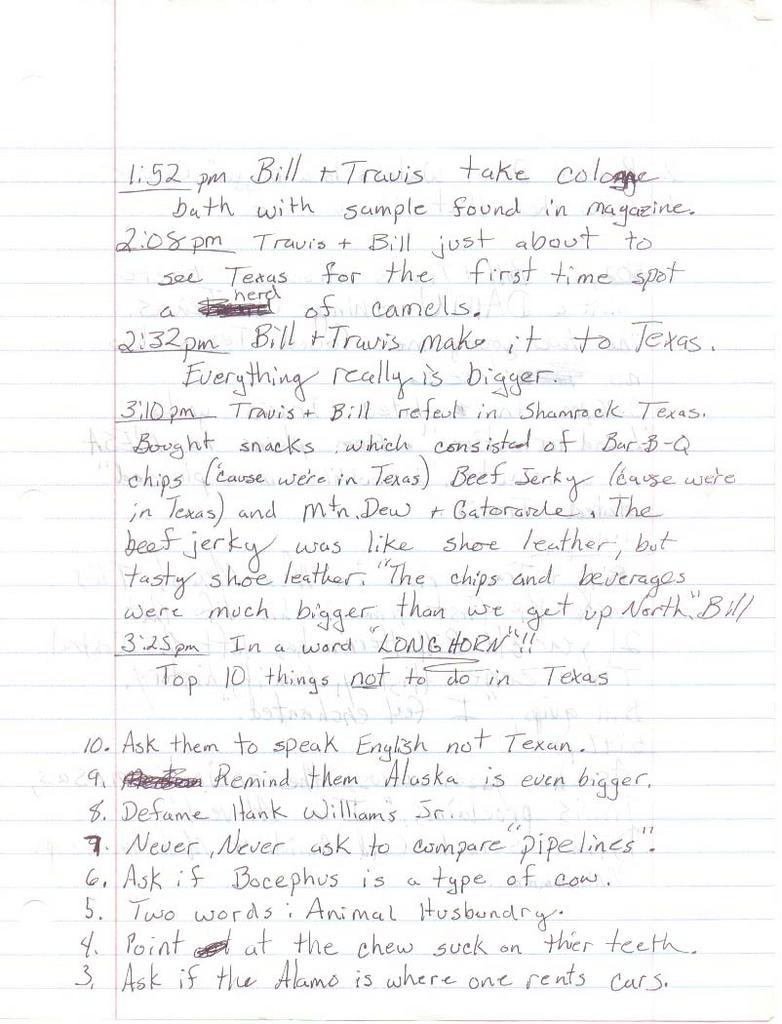 1:52 pm Bill + Travis take cologne
bath with sample found in magazine.
2:08 pm Travis + Bill just about to
see Texas for the first time spot
a herd of camels.
2:32 pm Bill + Travis make it to Texas.
Everything really is bigger.
3:10 pm Travis + Bill refeul in Shamrock Texas.
Bought snacks which consisted of Bar-B-Q
chips ('cause we're in Texas) Beef Jerky ('cause we're
in Texas) and Mtn. Dew + Gatorade. The
beef jerky was like shoe leather, but
tasty shoe leather. "The chips and beverages
were much bigger than we get up North." Bill
3:25 pm In a word "LONG HORN"!!
Top 10 things not to do in Texas
10. Ask them to speak English not Texan.
9. Remind them Alaska is even bigger.
8. Defame Hank Williams Jr.
7. Never, Never ask to compare "pipelines".
6. Ask if Bocephus is a type of cow.
5. Two words: Animal Husbundry.
4. Point at the chew suck on thier teeth.
3. Ask if the Alamo is where one rents cars.